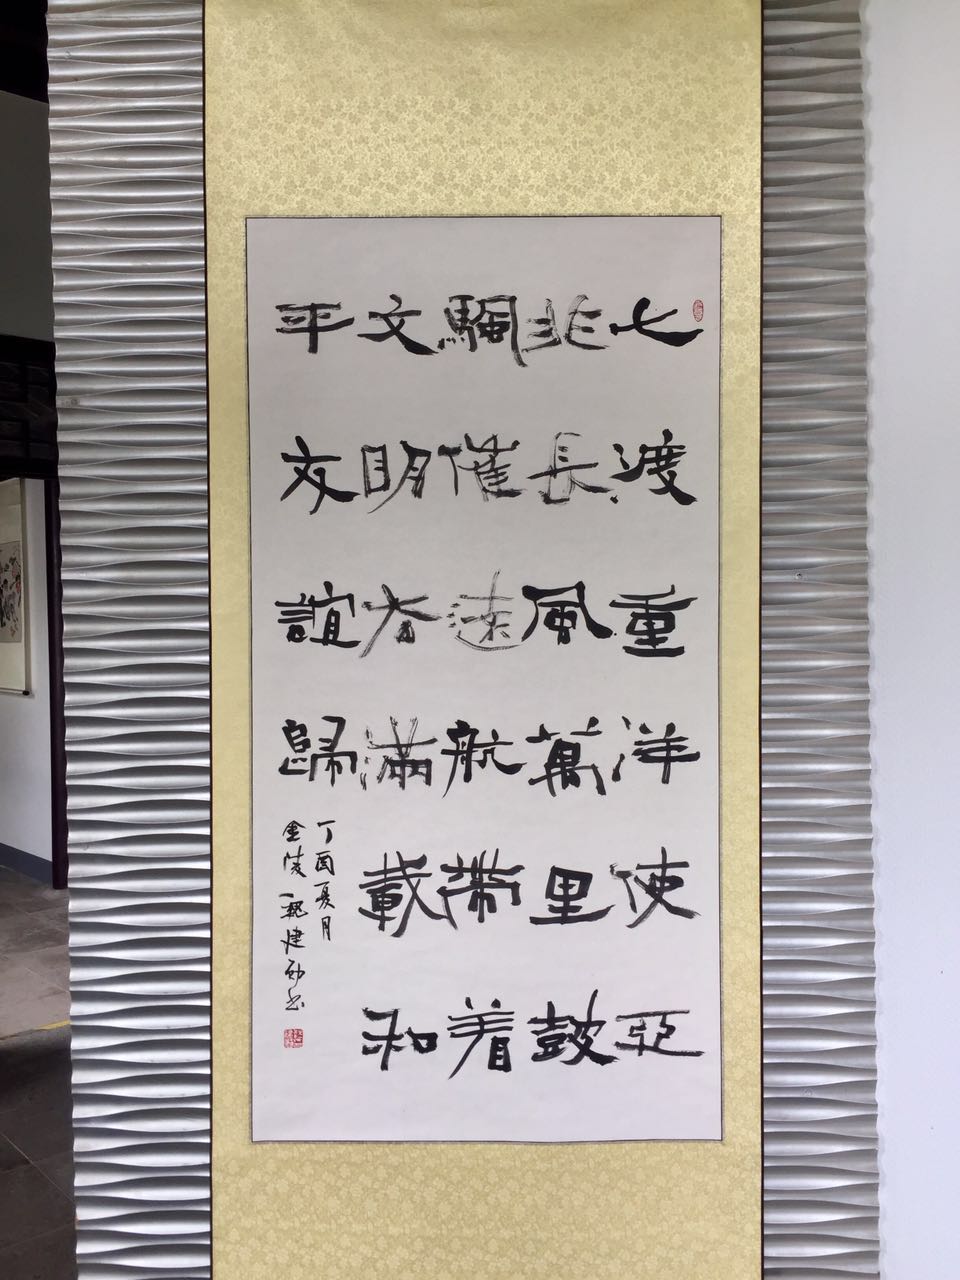 七渡重洋使亞
非長風萬里鼓
颿催遠航帶着
文明去滿載和
平友誼歸
丁酉夏月
金陵祝建书